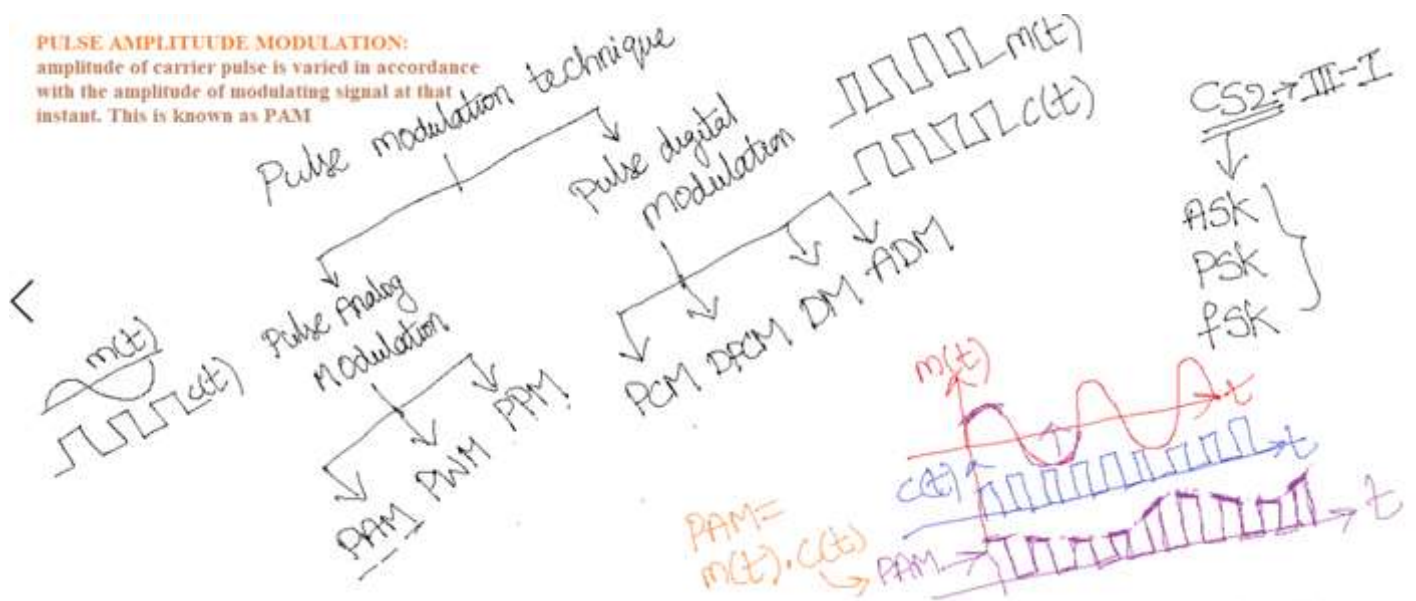 PULSE AMPLITUUDE MODULATION:
amplitude of carrier pulse is varied in accordance
with the amplitude of modulating signal at that
instant. This is known as PAM
Pulse modulation technique
Pulse digital
modulation
m(t)
c(t)
CS2→III-I
ASK
PSK
fSK
Pulse Analog
Modulation
m(t)
c(t)
PAM PWM PPM
PCM DPCM DM ADM
m(t)
t
c(t)
t
PAM=
m(t).c(t)
PAM
t